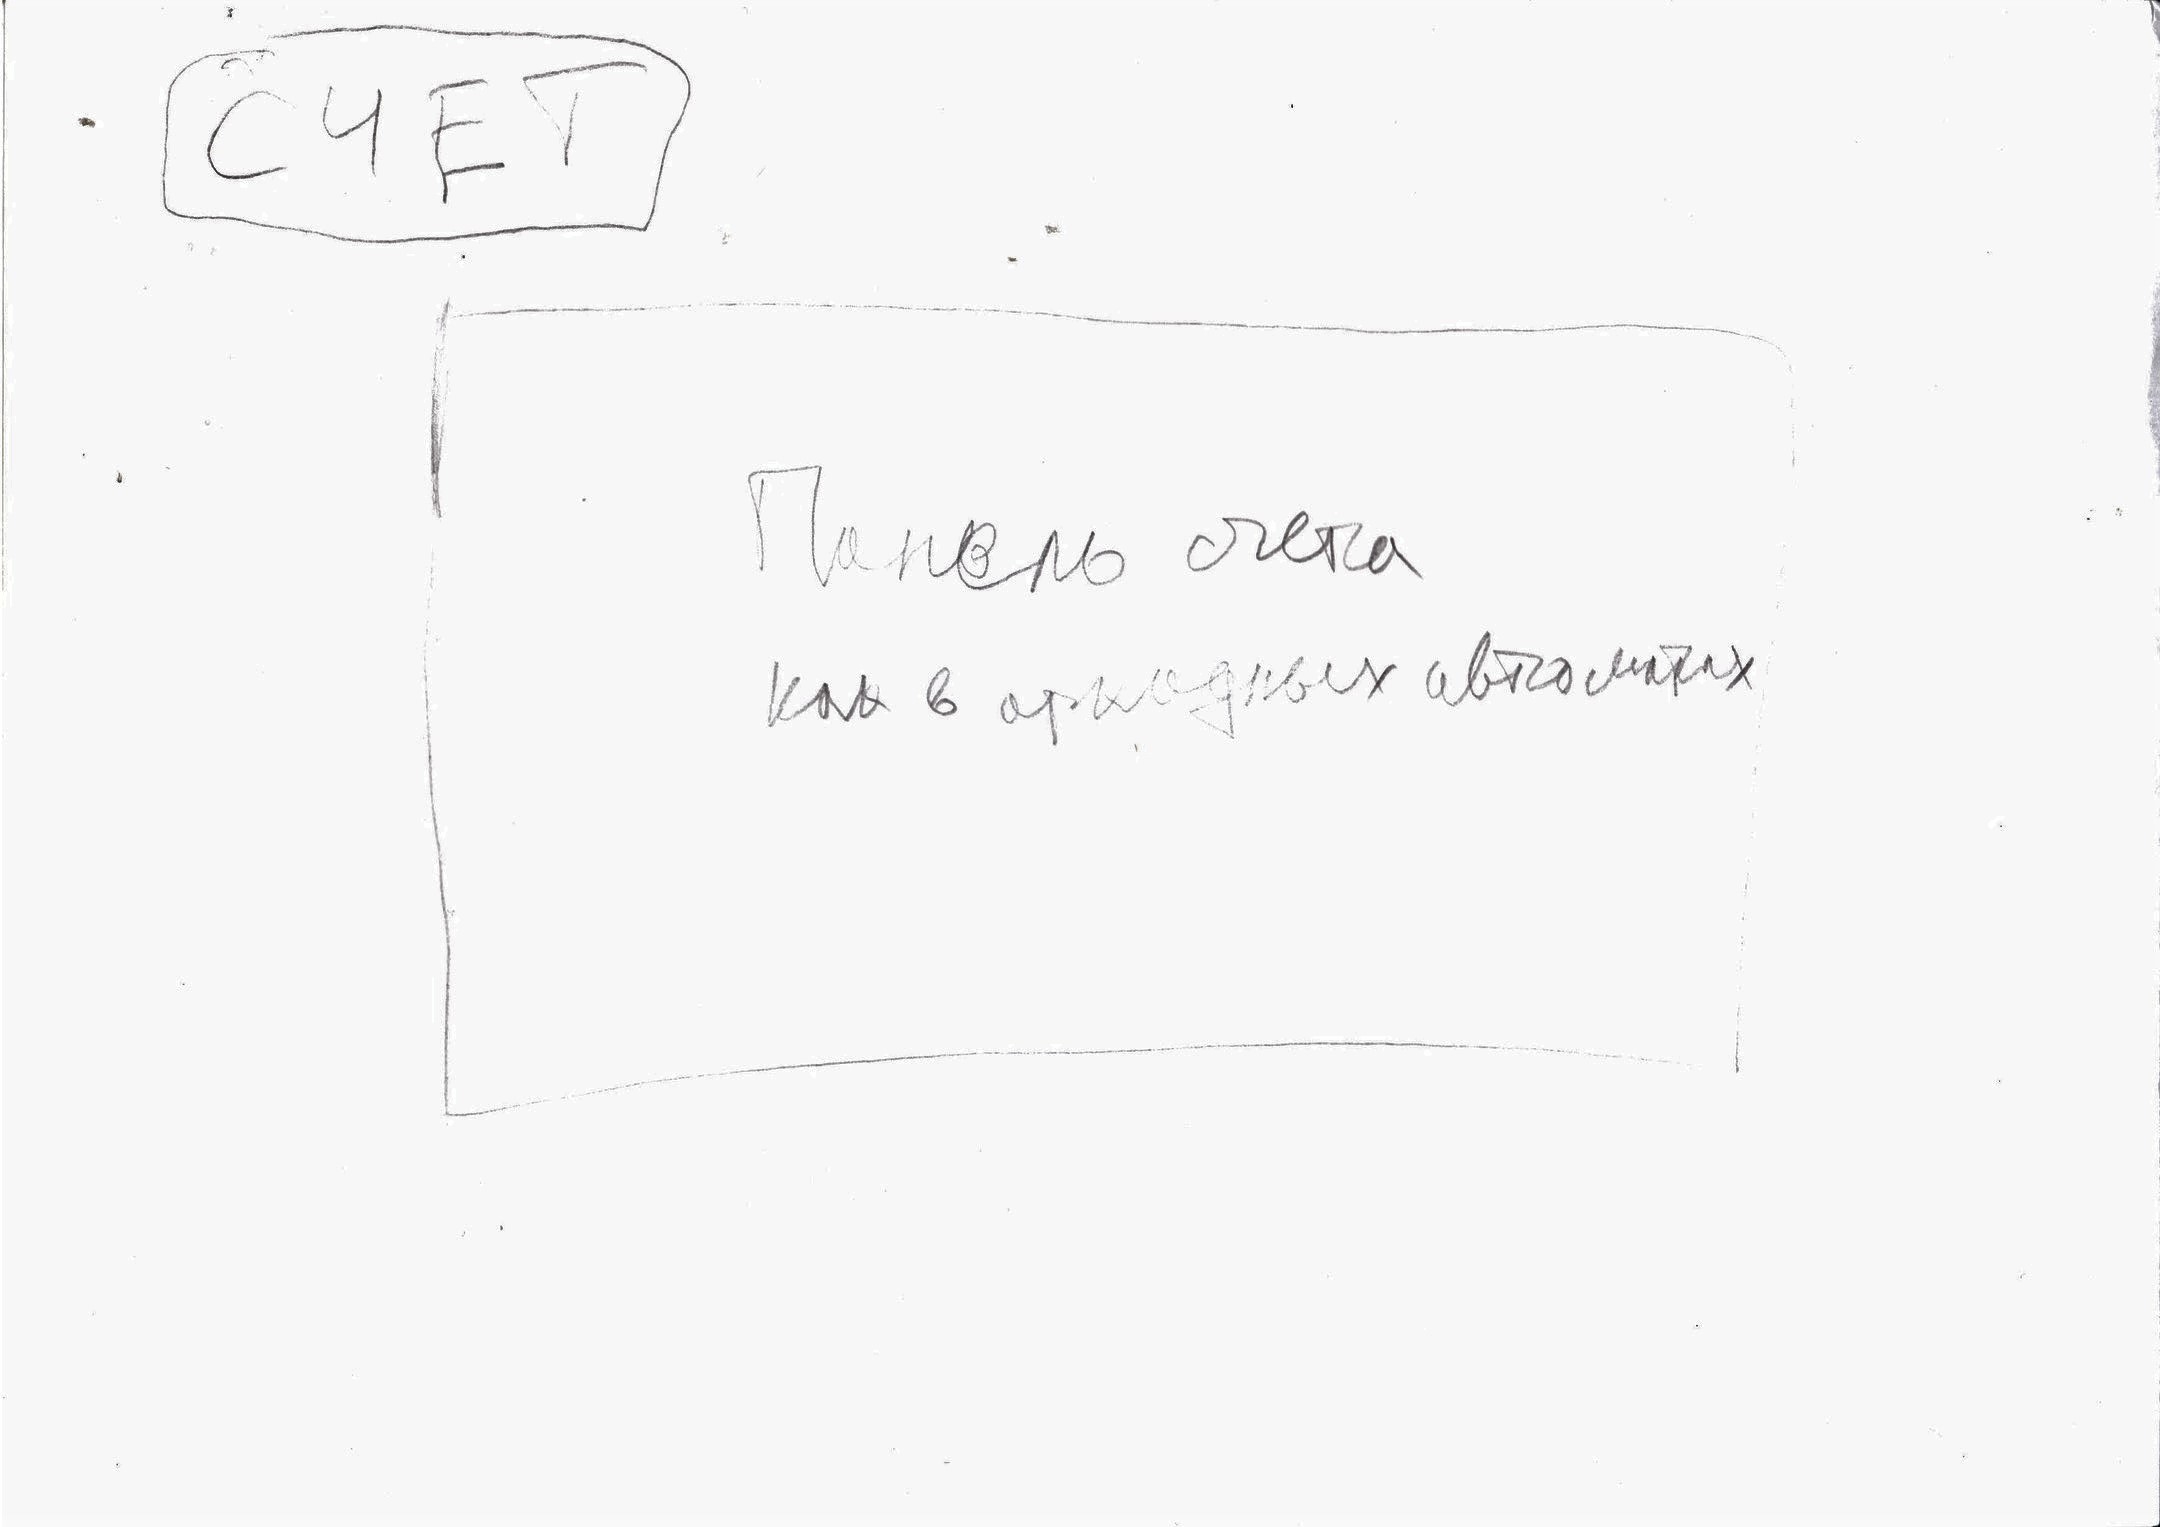 СЧЕТ
Панель счета
как в аркадных автоматах